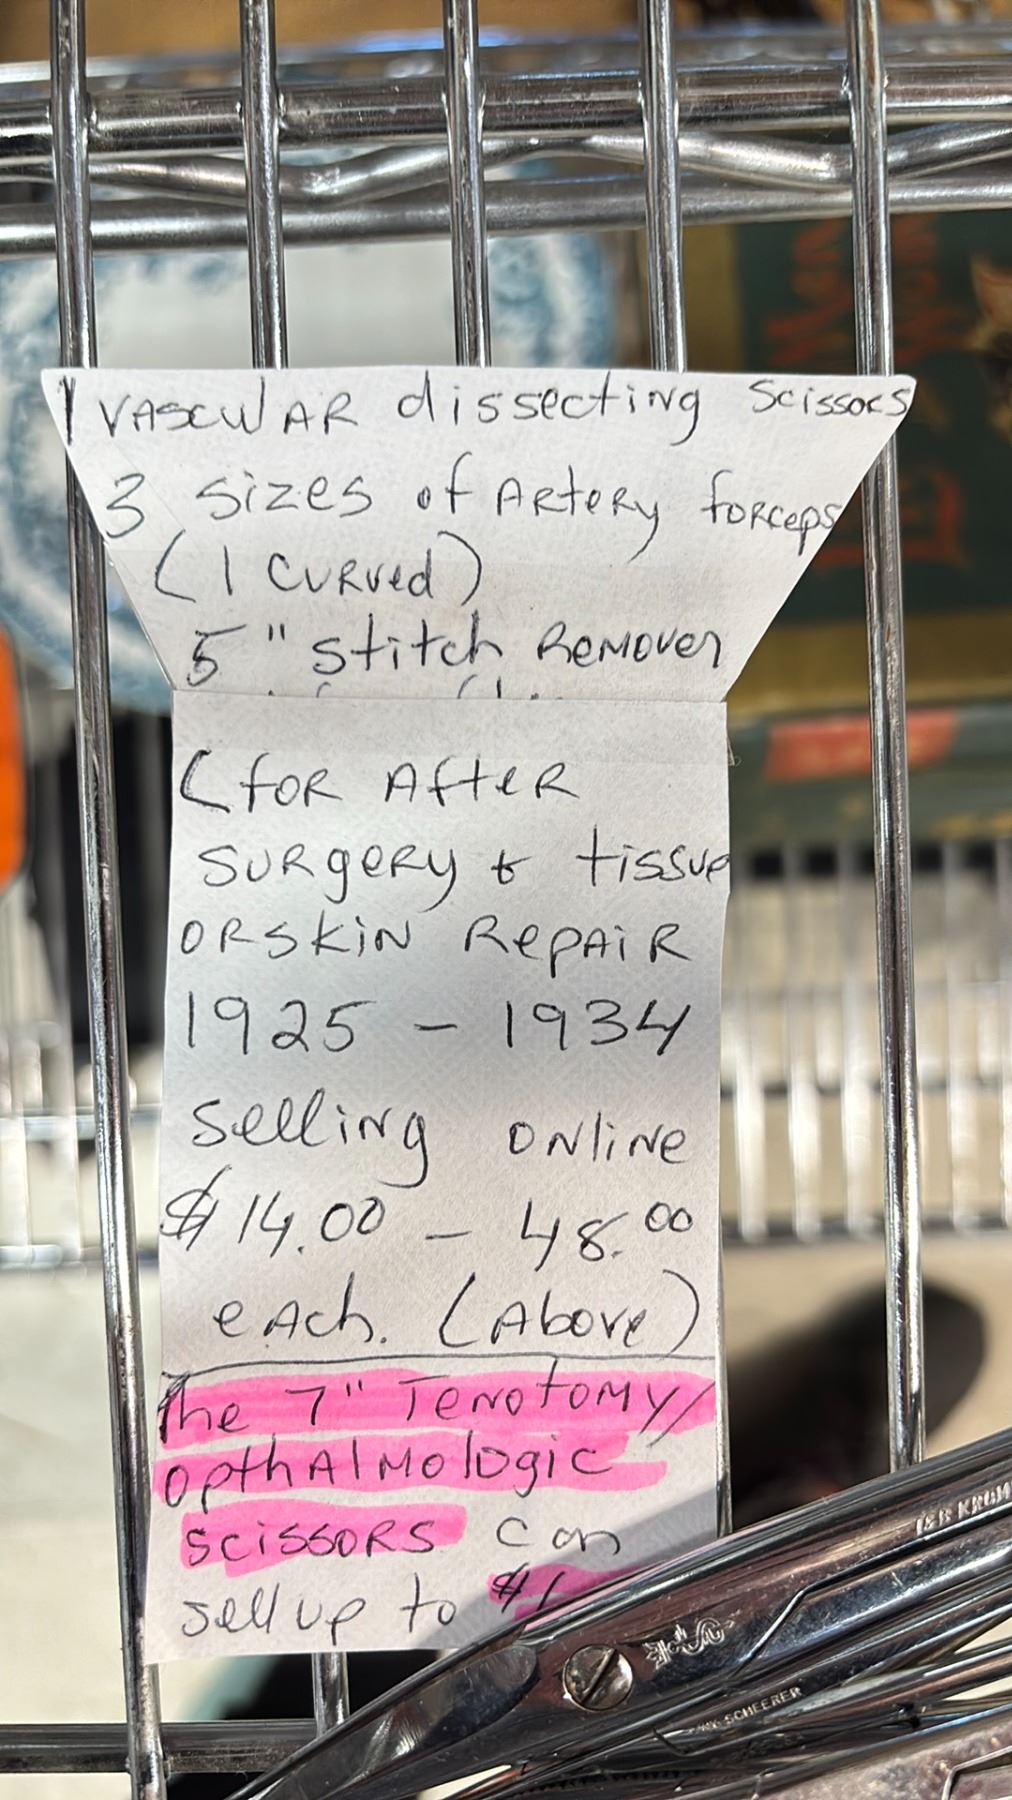 1 VASCULAR dissecting Scissors
3 sizes of ARteRy foRceps
(1 CURVed)
5" stitch Remover
(foR AfteR
SURgeRy & tissue
OR SKiN RepAiR
1925 - 1934
Selling ONliNe
$14.00 - 48.00
eAch. (Above)
The 7" TeNotomy/
OpthAlMologic
SCiSSORS can
sell up to $1
SCHEERER